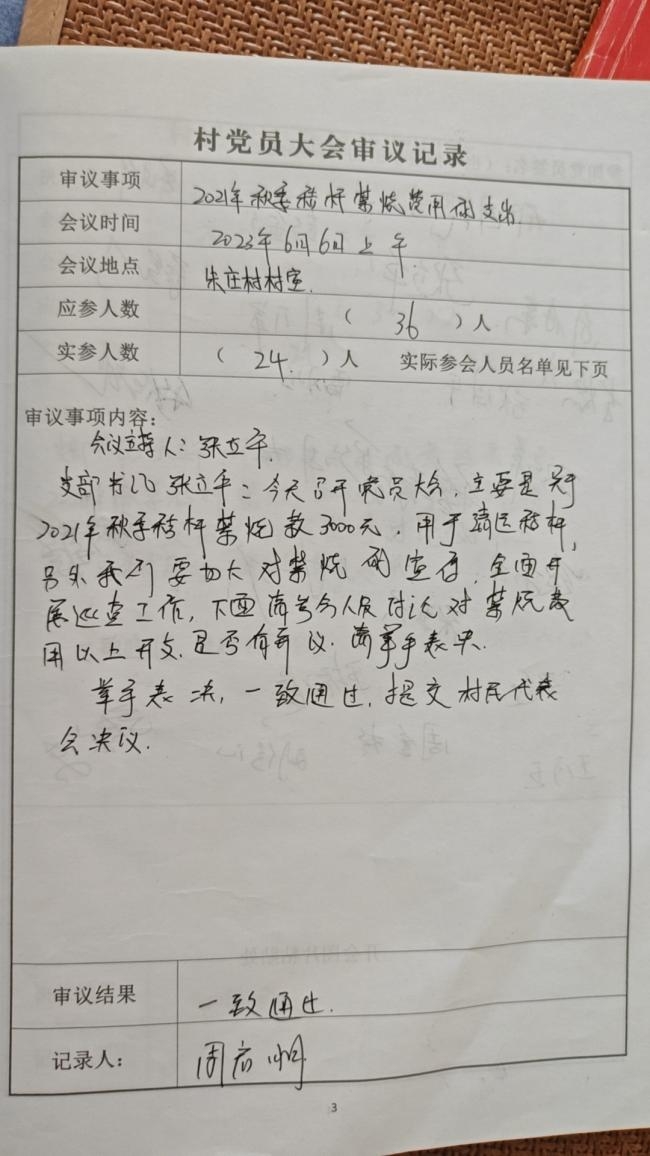 村党员大会审议记录
审议事项 2021年秋季秸秆禁烧费用的支出
会议时间 2023年6月6日上午
会议地点 朱庄村村室
应参人数 （ 36 ）人
实参人数 （ 24. ）人 实际参会人员名单见下页
审议事项内容：
会议主持人：张立平.
支部书记张立平：今天召开党员大会，主要是关于
2021年秋季秸秆禁烧款3000元，用于清运秸秆，
另外我们要加大对禁烧的宣传，全面开
展巡查工作，下面请与会人员讨论对禁烧费
用以上开支.是否有异议.请举手表决.
举手表决，一致通过，提交村民代表
会决议.
审议结果 一致通过.
记录人： 周
3